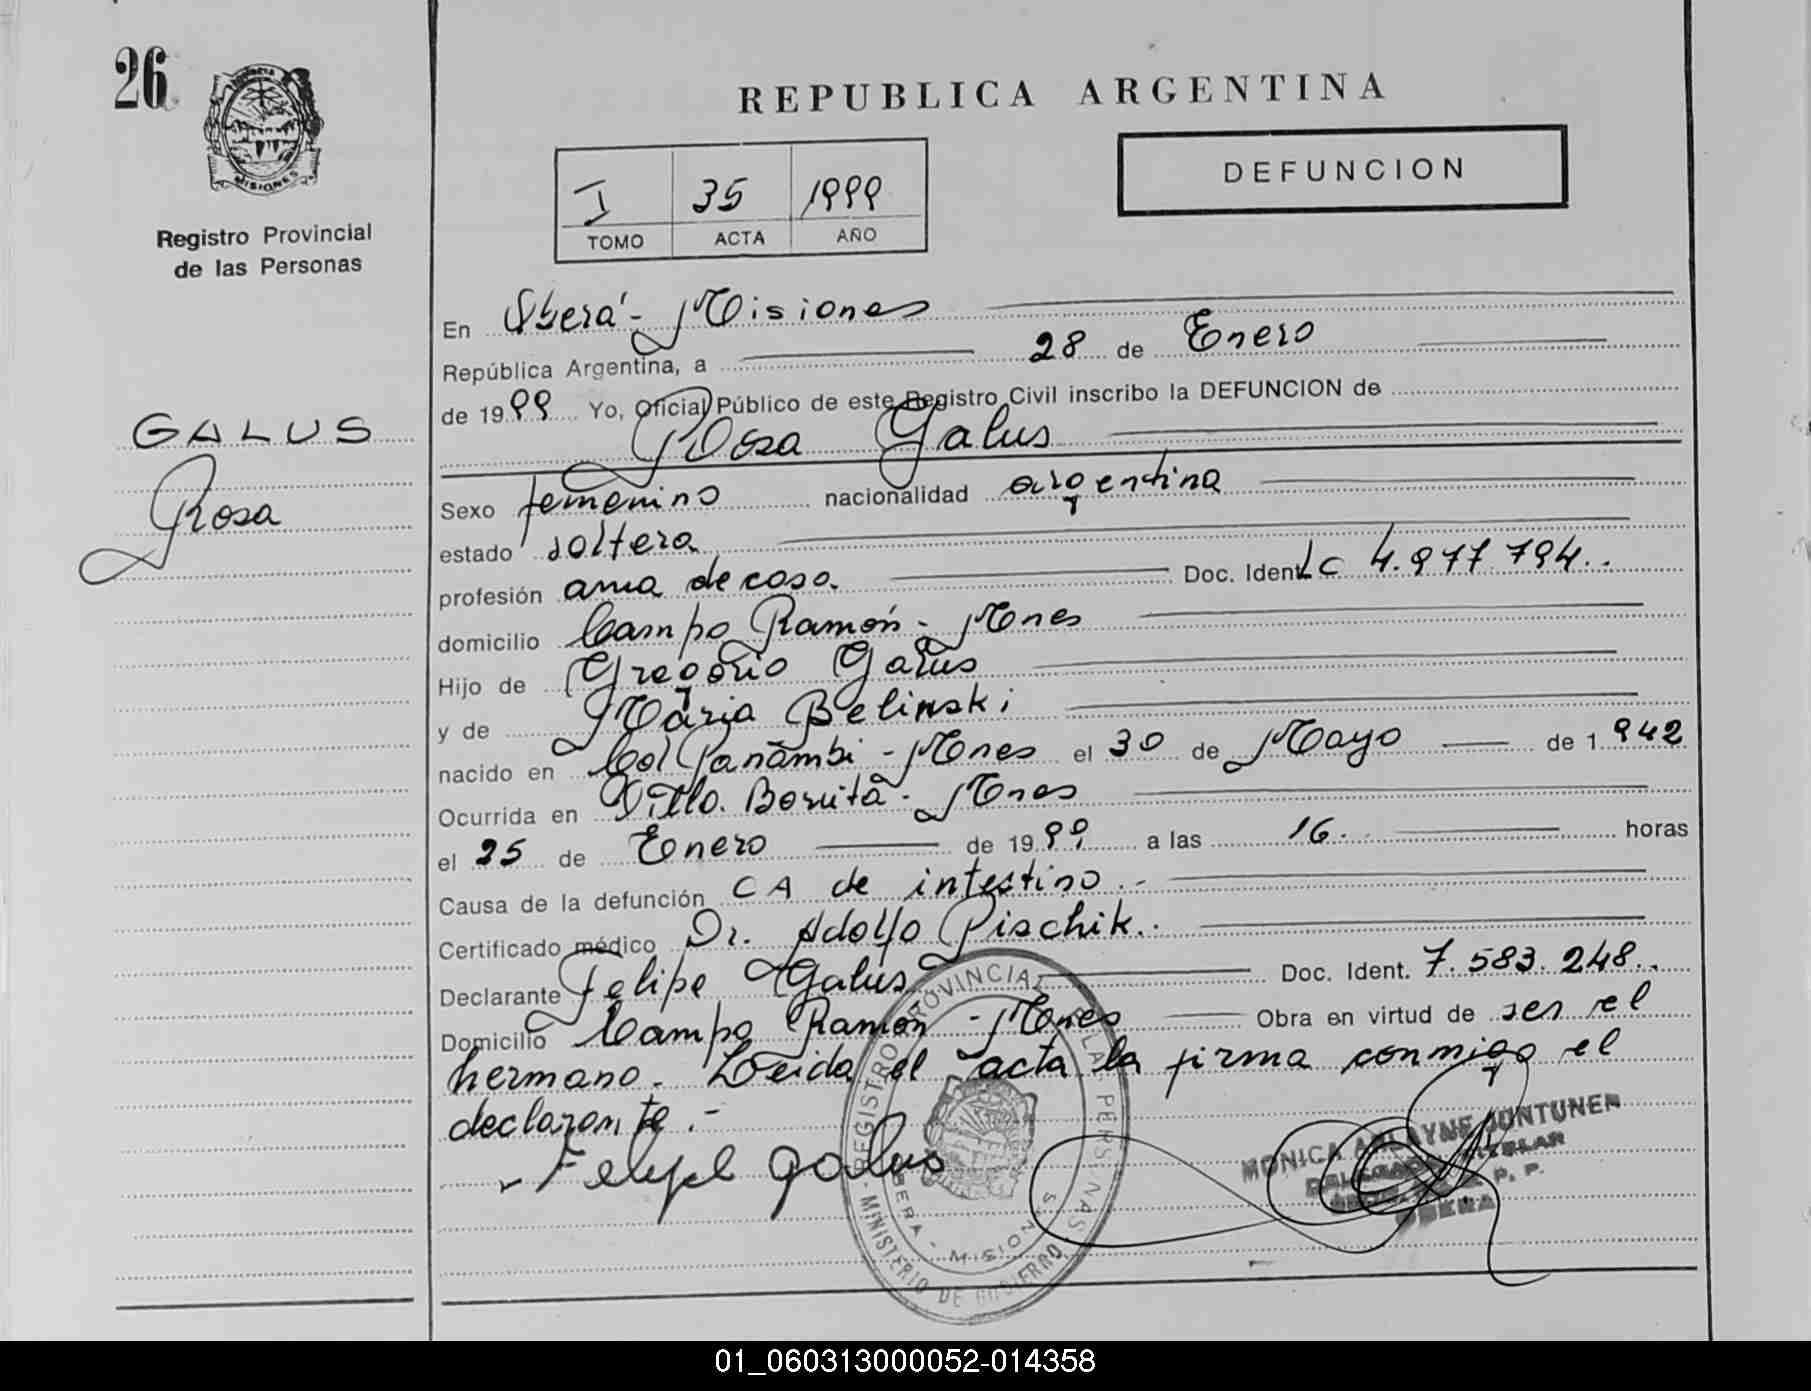 26
PROVINCIA
MISIONES
Registro Provincial
de las Personas
GALUS
Rosa
REPUBLICA ARGENTINA
I 35 1999
TOMO ACTA AÑO
DEFUNCION
En Oberá - Misiones
República Argentina, a 28 de Enero
de 1999 Yo, Oficial Público de este Registro Civil inscribo la DEFUNCION de
Rosa Galus
Sexo femenino nacionalidad argentina
estado soltera
profesión ama de casa. Doc. Ident. LC 4.977.794..
domicilio Campo Ramón - Mnes
Hijo de Gregorio Galus
y de María Belinski
nacido en Col Panambi - Mnes el 30 de Mayo de 1942
Ocurrida en Villa Bonita - Mnes
el 25 de Enero de 1999 a las 16. horas
Causa de la defunción CA de intestino.-
Certificado médico Dr. Adolfo Pischik..
Declarante Felipe Galus Doc. Ident. 7.583.248..
Domicilio Campo Ramón - Mnes Obra en virtud de ser el
hermano. Leida el acta la firma conmigo el
declarante.-
Felipe Galus
REGISTRO PROVINCIAL DE LAS PERSONAS
OBERA - MISIONES
MINISTERIO DE GOBIERNO
MONICA JUNTUNEN
TITULAR
R. P. P.
OBERA
01_060313000052-014358